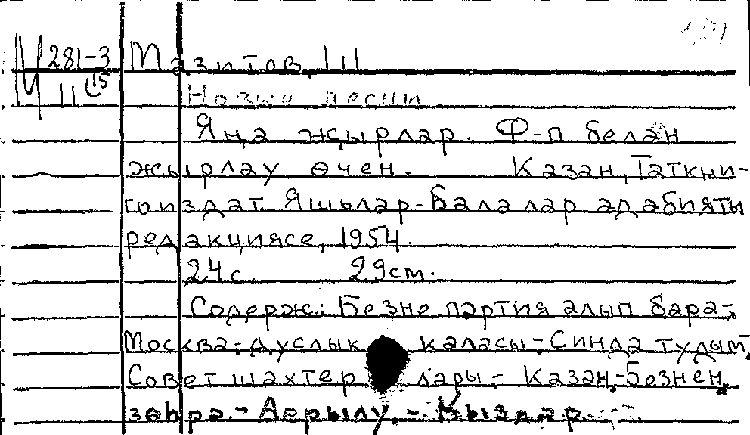 М 281-3 Мазитов, Ш
11 Новые песни
Яңа җырлар. Ф-п белән
җырлау өчен. Казан, Таткни-
гоиздат. Яшьләр-Балалар әдәбияты
редакциясе, 1954.
24 с. 29 cm.
Содерж: Безне партия алып бара-
Москва-дуслык каласы-Синдә тудым,
Совет шахтерлары.- Казан.-Безнең
зөһрә.-Аерылу.-Кызлар.-